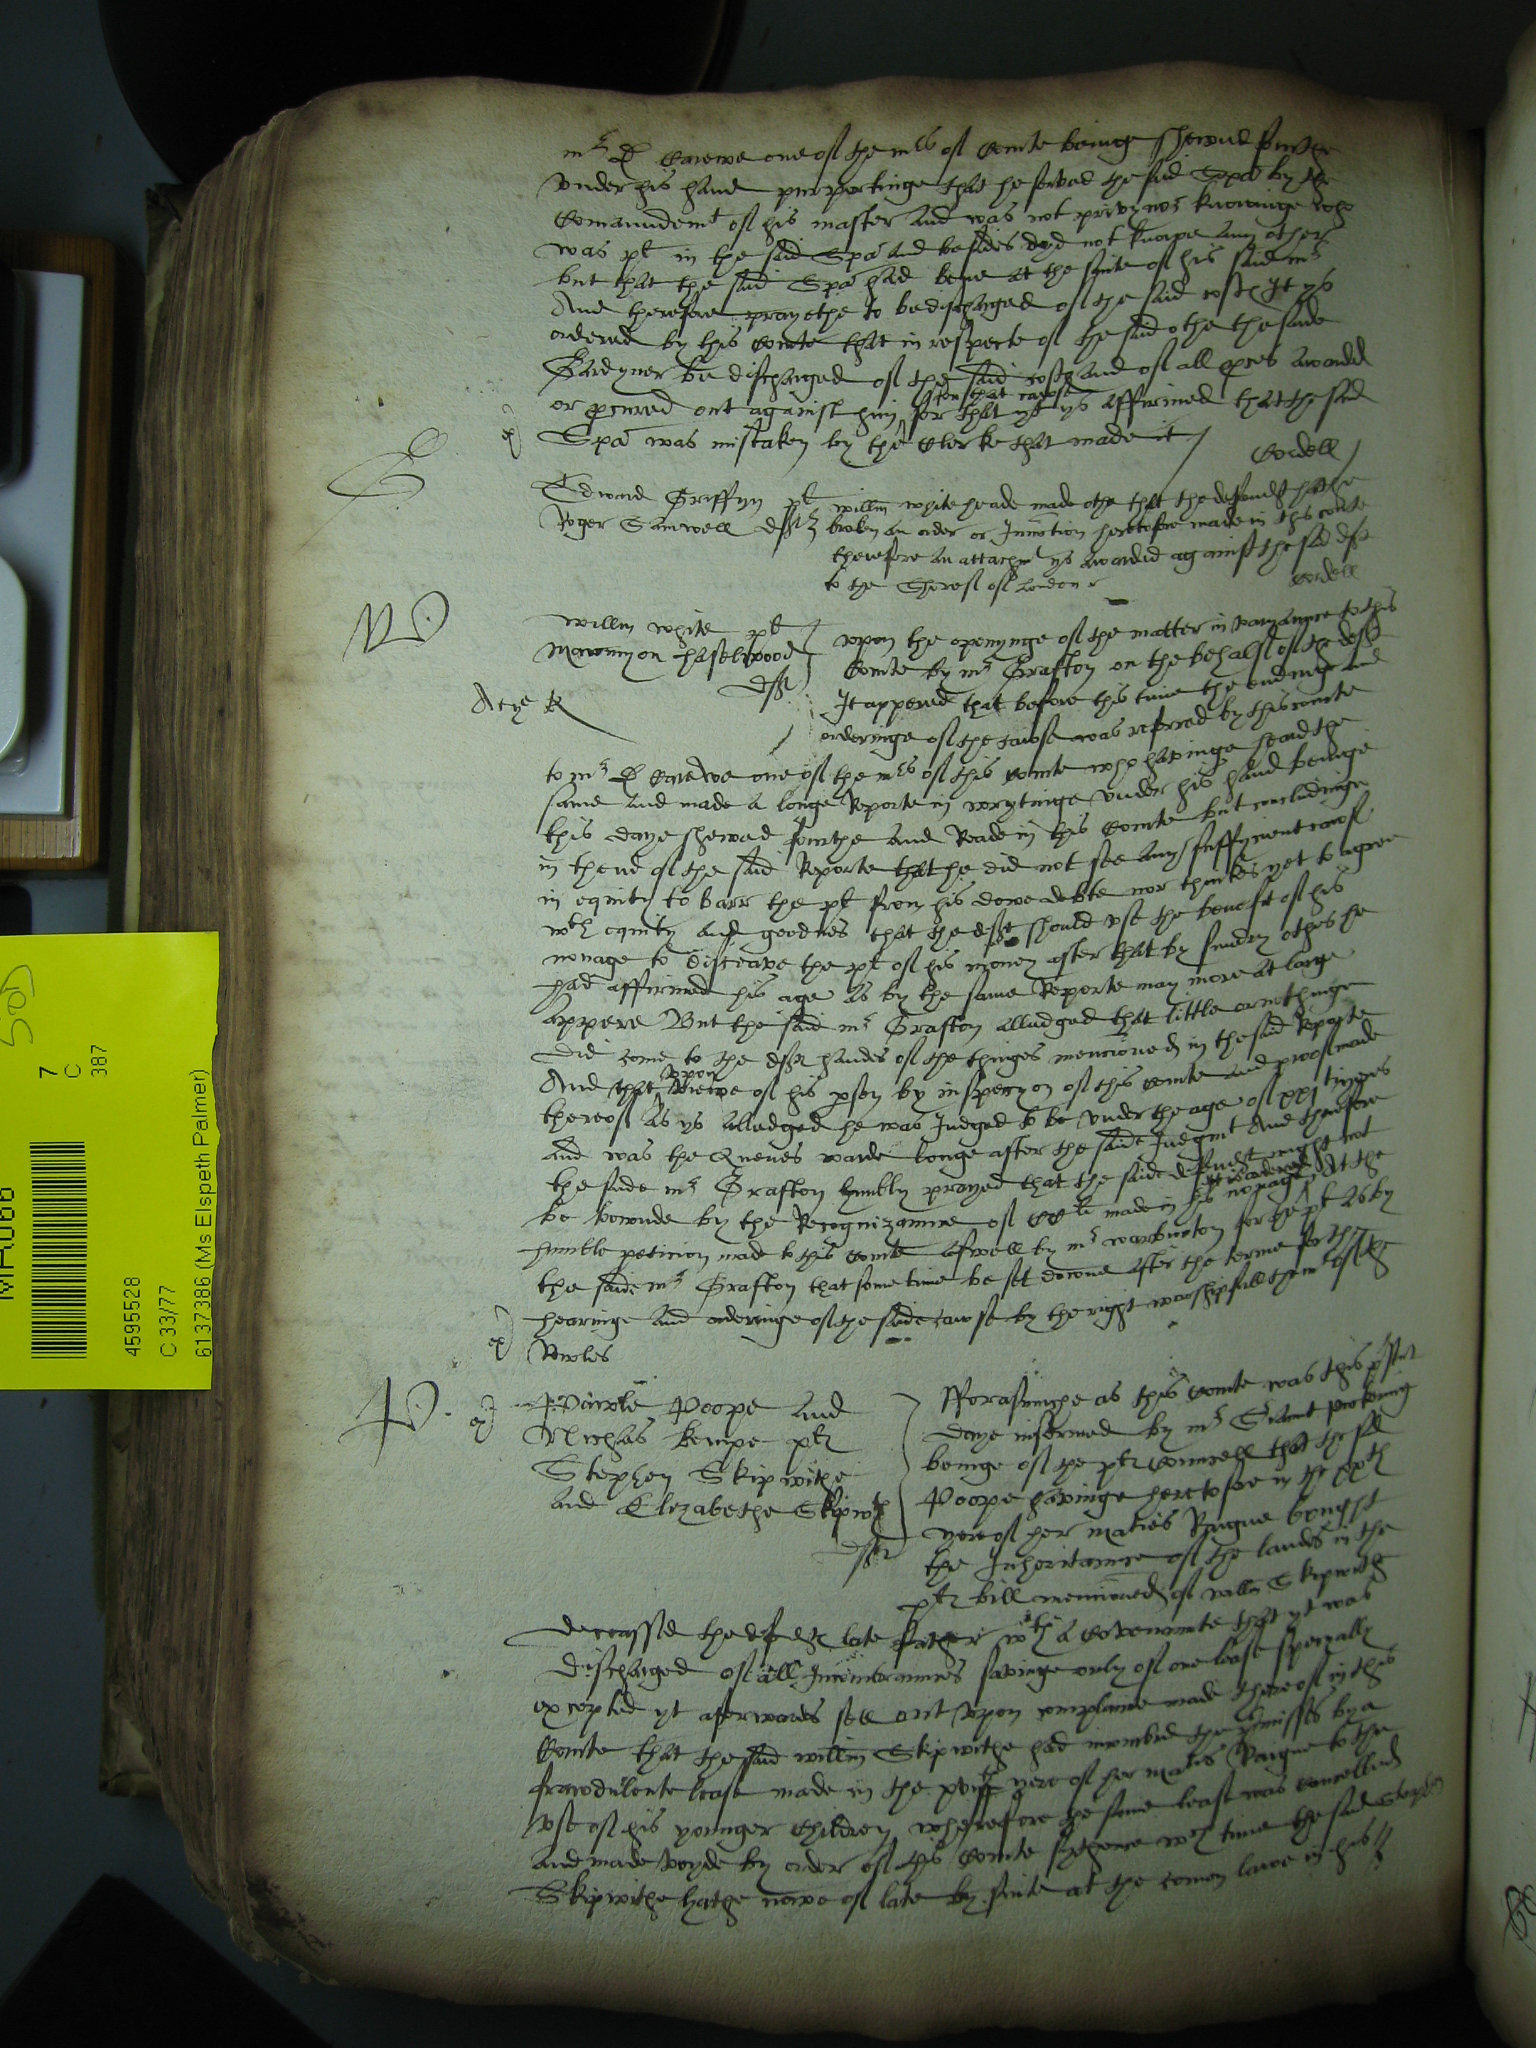 mr D Carewe one of the mrs of Courte beinge shewed furthe
vnder his hand purportinge that he served the said Spa by the
Comaundemt of his master And was not privy nor knowinge who
was pt in the said Spa And besides dyd not knowe any other
but that the said Spa had bene at the suite of his said mr
And therefore prayethe to be discharged of the said costs It ys
ordered by this Courte that in respecte of the said othe the saide
Gardyner be discharged of the said costs And of all proces awarded
for that cause
or procured out against him for that yt ys affirmed that the said
ex Spa was mistaken by the Clerke that made it
Cordell
E
Edward Griffyn pt
Roger Samwell deft
willm whiteheade made othe that the defendt hathe
broken an order or Iniunction heretofore made in this Courte
therefore an attachmt ys awarded against the said deft
to the Sheref of London
Cordell
W
willm white pt
haselwood
deft
vpon the openynge of the matter in varyaunce to this
Courte by mr Grafton on the behalf of the deft
It appered that before this time the endinge and
orderinge of the cause was referred by this courte
to mr D Carewe one of the mrs of this Courte who havinge heard the
same and made a longe Reporte in wrytinge vnder his hand beinge
this daye shewed fourthe and Reade in this Courte but concludinge
in thend of the said Reporte that he did not see any suffycient cause
in equity to barr the pt from his dewe debte nor thinkes yet to agree
wth equity and goodnes that the deft should vse the benefit of his
nonage to disceave the pt of his money after that by sundry othes he
had affirmed his age as by the same Reporte may more at large
appere But the said mr Grafton alledged that little or nothinge
did come to the defts handes of the thinges mencioned in the said Reporte
vpon
And that viewe of his pson by inspeccyon of this Courte and proof made
thereof As ys alledged he was Iudged to be vnder the age of xxj
and was the Quenes warde longe after the saide Iudgmt And therefore
the saide mr Grafton humbly prayed that the saide defendt might not
it is ordered
be bounde by the Recognizaunce of made in his nonage At the
humble peticion made to this Courte aswell by mr warburton for the pt As by
the saide mr Grafton that some time be set downe after the terme for the
hearinge and orderinge of the saide cause by the right worshipfull the mr of the
ex Rowles
P
ex
Pawle Poope and
Nichas kempe pts
Stephen Skipwithe
and Elizabethe Skipwth
defts
Fforasmuche as this Courte was this psent
daye informed by mr
beinge of the pts Councell that the said
Poope havinge heretofore in the xxth
yere of her maties Raigne bought
the Inheritaunce of the landes in the
pts bill mencioned of willm Skipwith
deceassed the defendts late father wth a Covenaunte that yt was
discharged of all Incombraunces savinge only of one lease specyally
excepted yt afterwards fell out vpon complainte made thereof in this
Courte that the said willm Skipwithe had incombred the premisses by a
frawdulente lease made in the yere of her maties Raigne to the
vse of his younger children wherefore the same lease was cancelled
and made voyde by order of this Courte sythence wch time the said Stephen
Skipwithe hathe nowe of late by suite at the comon lawe in his

MR066
7
C
387
4595528
C 33/77
6137386 (Ms Elspeth Palmer)